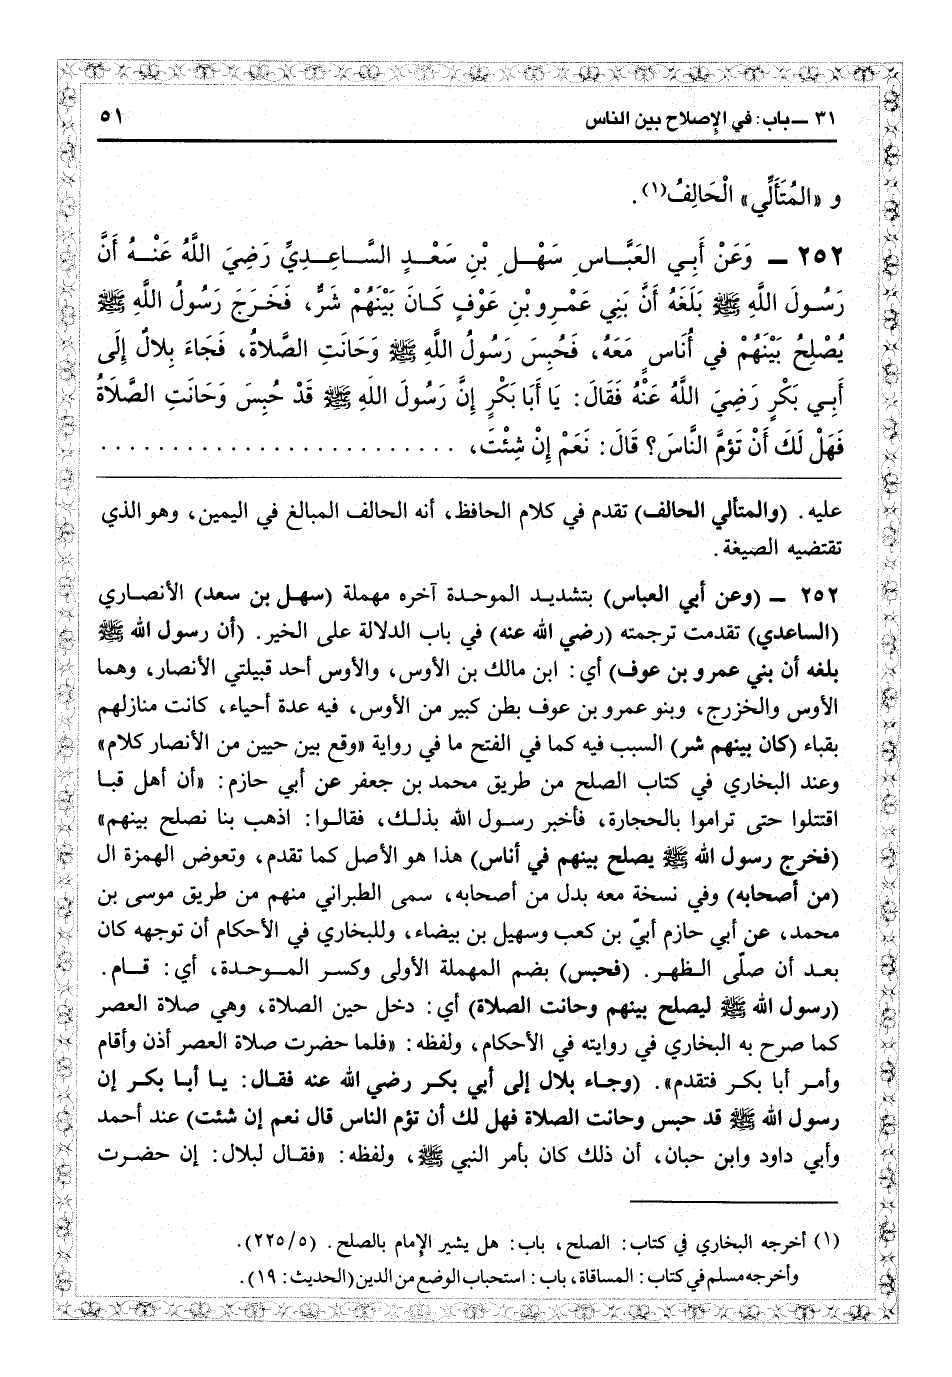 ٣١ ــ باب: في الإصلاح بين الناس ٥١
و «المُتَأَلِّي» الْحَالِفُ(١).
٢٥٢ ــ وَعَنْ أَبِي العَبَّاسِ سَهْلِ بْنِ سَعْدٍ السَّاعِدِيِّ رَضِيَ اللَّهُ عَنْهُ أَنَّ
رَسُولَ اللَّهِ ﷺ بَلَغَهُ أَنَّ بَنِي عَمْرِو بْنِ عَوْفٍ كَانَ بَيْنَهُمْ شَرٌّ، فَخَرَجَ رَسُولُ اللَّهِ ﷺ
يُصْلِحُ بَيْنَهُمْ فِي أُنَاسٍ مَعَهُ، فَحُبِسَ رَسُولُ اللَّهِ ﷺ وَحَانَتِ الصَّلاةُ، فَجَاءَ بِلالٌ إِلَى
أَبِي بَكْرٍ رَضِيَ اللَّهُ عَنْهُ فَقَالَ: يَا أَبَا بَكْرٍ إِنَّ رَسُولَ اللَّهِ ﷺ قَدْ حُبِسَ وَحَانَتِ الصَّلاةُ
فَهَلْ لَكَ أَنْ تَؤُمَّ النَّاسَ؟ قَالَ: نَعَمْ إِنْ شِئْتَ، . . . . . . . . . . . . . . . . . . . . . . . .
عليه. (والمتألي الحالف) تقدم في كلام الحافظ، أنه الحالف المبالغ في اليمين، وهو الذي
تقتضيه الصيغة.
٢٥٢ ــ (وعن أبي العباس) بتشديد الموحدة آخره مهملة (سهل بن سعد) الأنصاري
(الساعدي) تقدمت ترجمته (رضي الله عنه) في باب الدلالة على الخير. (أن رسول الله ﷺ
بلغه أن بني عمرو بن عوف) أي: ابن مالك بن الأوس، والأوس أحد قبيلتي الأنصار، وهما
الأوس والخزرج، وبنو عمرو بن عوف بطن كبير من الأوس، فيه عدة أحياء، كانت منازلهم
بقباء (كان بينهم شر) السبب فيه كما في الفتح ما في رواية «وقع بين حيين من الأنصار كلام»
وعند البخاري في كتاب الصلح من طريق محمد بن جعفر عن أبي حازم: «أن أهل قبا
اقتتلوا حتى تراموا بالحجارة، فأخبر رسول الله بذلك، فقالوا: اذهب بنا نصلح بينهم»
(فخرج رسول الله ﷺ يصلح بينهم في أناس) هذا هو الأصل كما تقدم، وتعوض الهمزة ال
(من أصحابه) وفي نسخة معه بدل من أصحابه، سمى الطبراني منهم من طريق موسى بن
محمد، عن أبي حازم أبيّ بن كعب وسهيل بن بيضاء، وللبخاري في الأحكام أن توجهه كان
بعد أن صلّى الظهر. (فحبس) بضم المهملة الأولى وكسر الموحدة، أي: قام.
(رسول الله ﷺ ليصلح بينهم وحانت الصلاة) أي: دخل حين الصلاة، وهي صلاة العصر
كما صرح به البخاري في روايته في الأحكام، ولفظه: «فلما حضرت صلاة العصر أذن وأقام
وأمر أبا بكر فتقدم». (وجاء بلال إلى أبي بكر رضي الله عنه فقال: يا أبا بكر إن
رسول الله ﷺ قد حبس وحانت الصلاة فهل لك أن تؤم الناس قال نعم إن شئت) عند أحمد
وأبي داود وابن حبان، أن ذلك كان بأمر النبي ﷺ، ولفظه: «فقال لبلال: إن حضرت
(١) أخرجه البخاري في كتاب: الصلح، باب: هل يشير الإمام بالصلح. (٢٢٥/٥).
وأخرجه مسلم في كتاب: المساقاة، باب: استحباب الوضع من الدين (الحديث: ١٩).